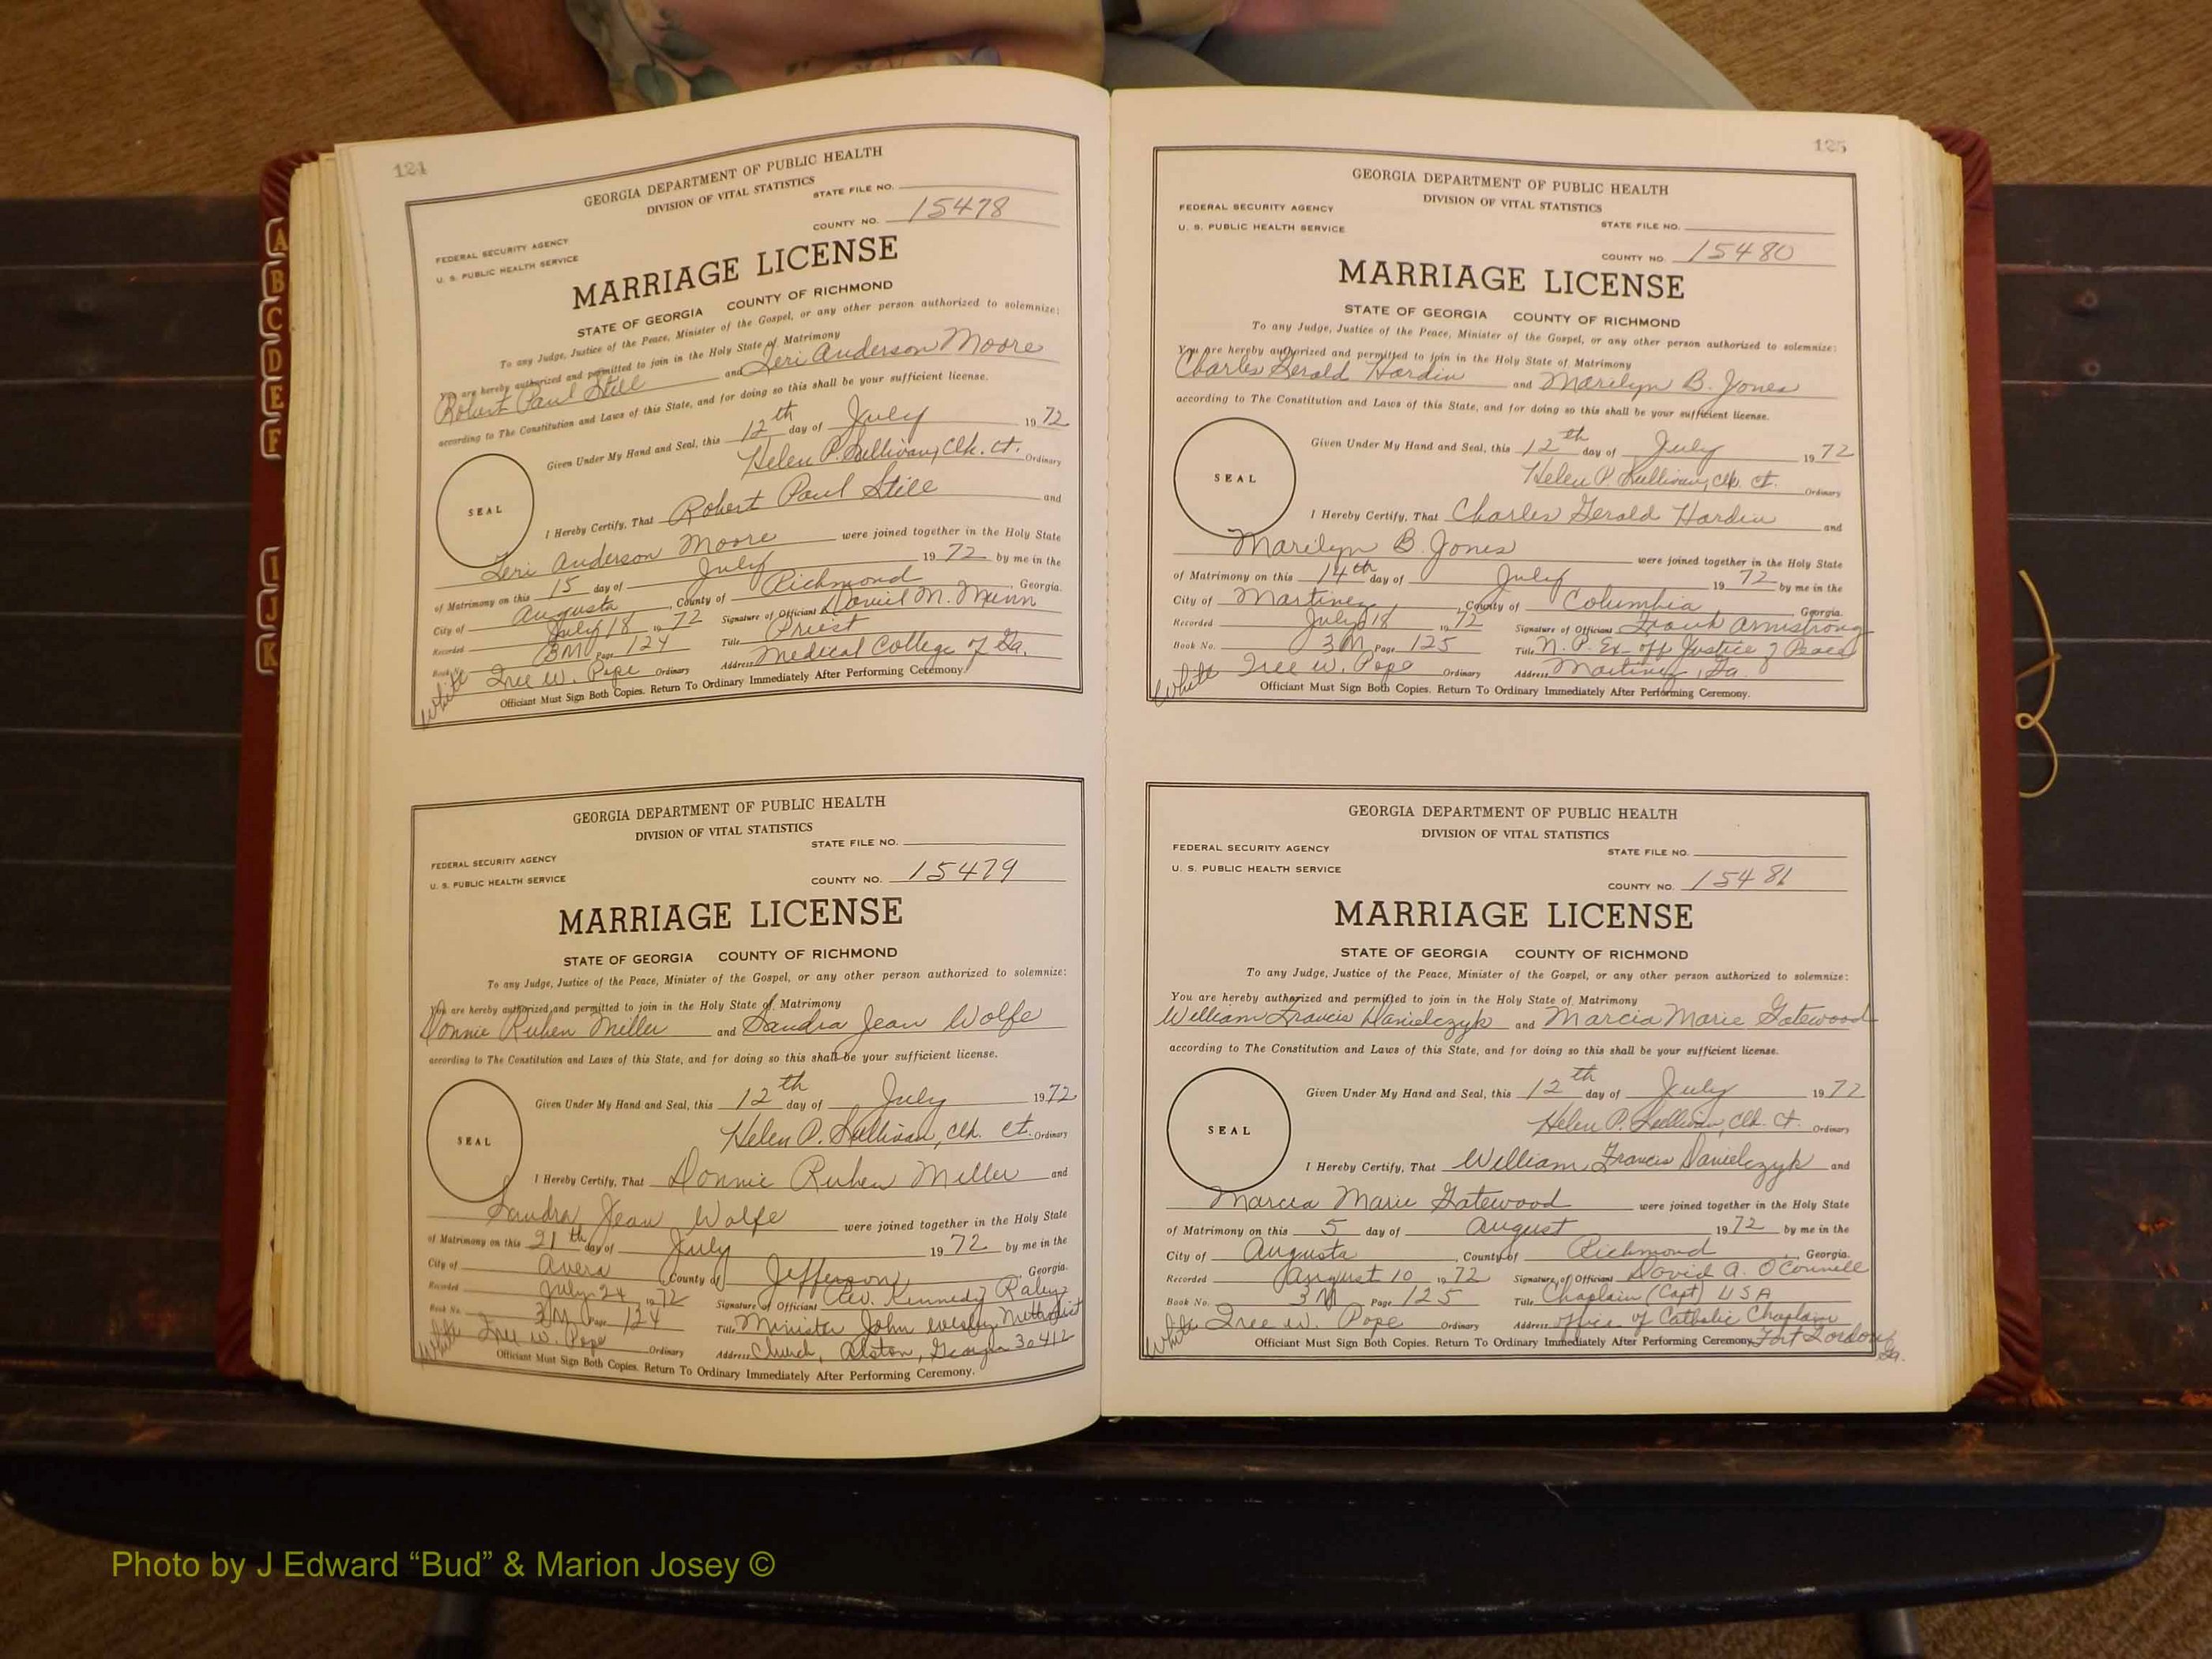 A
B
C
D
E
F
I
J
K
124
GEORGIA DEPARTMENT OF PUBLIC HEALTH
DIVISION OF VITAL STATISTICS
STATE FILE NO.
FEDERAL SECURITY AGENCY
U. S. PUBLIC HEALTH SERVICE
COUNTY NO. 15478
MARRIAGE LICENSE
STATE OF GEORGIA COUNTY OF RICHMOND
To any Judge, Justice of the Peace, Minister of the Gospel, or any other person authorized to solemnize:
You are hereby authorized and permitted to join in the Holy State of Matrimony
Robert Paul Still and Teri Anderson Moore
according to The Constitution and Laws of this State, and for doing so this shall be your sufficient license.
Given Under My Hand and Seal, this 12th day of July 1972
Helen P. Sullivan, Clk. Ct. Ordinary
SEAL
I Hereby Certify, That Robert Paul Still and
Teri Anderson Moore were joined together in the Holy State
of Matrimony on this 15 day of July 1972 by me in the
City of Augusta, County of Richmond, Georgia.
Recorded July 18 1972 Signature of Officiant Daniel M. Munn
Book No. 3M Page 124 Title Priest
White Tree W. Pope Ordinary Address Medical College of Ga.
Officiant Must Sign Both Copies. Return To Ordinary Immediately After Performing Ceremony.
GEORGIA DEPARTMENT OF PUBLIC HEALTH
DIVISION OF VITAL STATISTICS
STATE FILE NO.
FEDERAL SECURITY AGENCY
U. S. PUBLIC HEALTH SERVICE
COUNTY NO. 15479
MARRIAGE LICENSE
STATE OF GEORGIA COUNTY OF RICHMOND
To any Judge, Justice of the Peace, Minister of the Gospel, or any other person authorized to solemnize:
You are hereby authorized and permitted to join in the Holy State of Matrimony
Donnie Ruben Miller and Sandra Jean Wolfe
according to The Constitution and Laws of this State, and for doing so this shall be your sufficient license.
Given Under My Hand and Seal, this 12th day of July 1972
Helen P. Sullivan, Clk. Ct. Ordinary
SEAL
I Hereby Certify, That Donnie Ruben Miller and
Sandra Jean Wolfe were joined together in the Holy State
of Matrimony on this 21th day of July 1972 by me in the
City of Avera County of Jefferson, Georgia.
Recorded July 24 1972 Signature of Officiant Rev. Kennedy Raley
Book No. 3M Page 124 Title Minister John Wesley Methodist
White Tree W. Pope Ordinary Address Church, Alston, Georgia 30412
Officiant Must Sign Both Copies. Return To Ordinary Immediately After Performing Ceremony.
125
GEORGIA DEPARTMENT OF PUBLIC HEALTH
DIVISION OF VITAL STATISTICS
FEDERAL SECURITY AGENCY
U. S. PUBLIC HEALTH SERVICE
STATE FILE NO.
COUNTY NO. 15480
MARRIAGE LICENSE
STATE OF GEORGIA COUNTY OF RICHMOND
To any Judge, Justice of the Peace, Minister of the Gospel, or any other person authorized to solemnize:
You are hereby authorized and permitted to join in the Holy State of Matrimony
Charles Gerald Hardin and Marilyn B. Jones
according to The Constitution and Laws of this State, and for doing so this shall be your sufficient license.
Given Under My Hand and Seal, this 12th day of July 1972
Helen P. Sullivan, Clk. Ct. Ordinary
SEAL
I Hereby Certify, That Charles Gerald Hardin and
Marilyn B. Jones were joined together in the Holy State
of Matrimony on this 14th day of July 1972 by me in the
City of Martinez, County of Columbia, Georgia.
Recorded July 18 1972 Signature of Officiant Frank Armstrong
Book No. 3M Page 125 Title N. P. Ex- off Justice of Peace
White Tree W. Pope Ordinary Address Martinez, Ga.
Officiant Must Sign Both Copies. Return To Ordinary Immediately After Performing Ceremony.
GEORGIA DEPARTMENT OF PUBLIC HEALTH
DIVISION OF VITAL STATISTICS
FEDERAL SECURITY AGENCY
U. S. PUBLIC HEALTH SERVICE
STATE FILE NO.
COUNTY NO. 15481
MARRIAGE LICENSE
STATE OF GEORGIA COUNTY OF RICHMOND
To any Judge, Justice of the Peace, Minister of the Gospel, or any other person authorized to solemnize:
You are hereby authorized and permitted to join in the Holy State of Matrimony
William Francis Danielczyk and Marcia Marie Gatewood
according to The Constitution and Laws of this State, and for doing so this shall be your sufficient license.
Given Under My Hand and Seal, this 12th day of July 1972
Helen P. Sullivan, Clk. Ct. Ordinary
SEAL
I Hereby Certify, That William Francis Danielczyk and
Marcia Marie Gatewood were joined together in the Holy State
of Matrimony on this 5 day of August 1972 by me in the
City of Augusta, County of Richmond, Georgia.
Recorded August 10 1972 Signature of Officiant David A. O'Connell
Book No. 3M Page 125 Title Chaplain (Capt) USA
White Tree W. Pope Ordinary Address Office of Catholic Chaplain
Officiant Must Sign Both Copies. Return To Ordinary Immediately After Performing Ceremony. Fort Gordon,
Ga.
Photo by J Edward “Bud” & Marion Josey ©